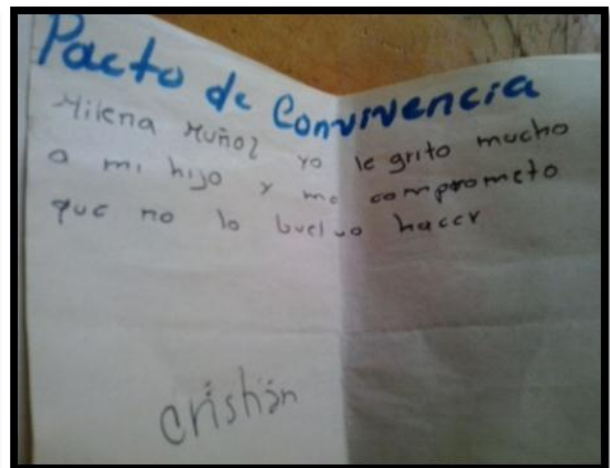 Pacto de Convivencia
Milena Muñoz yo le grito mucho
a mi hijo y me comprometo
que no lo buelvo hacer
cristián